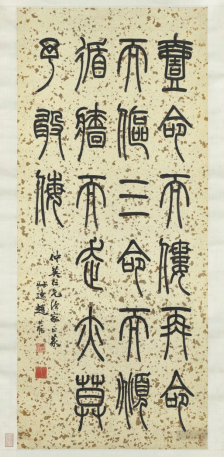 壹命而僂再命
而傴三命而頫
循牆而走亦莫
予敢侮
仲英仁兄法家正篆
趙